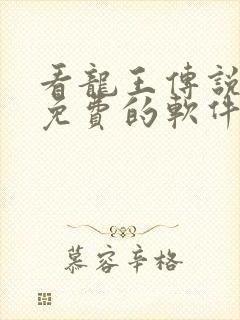 看龍王傳說
免費的軟件
慕容辛格